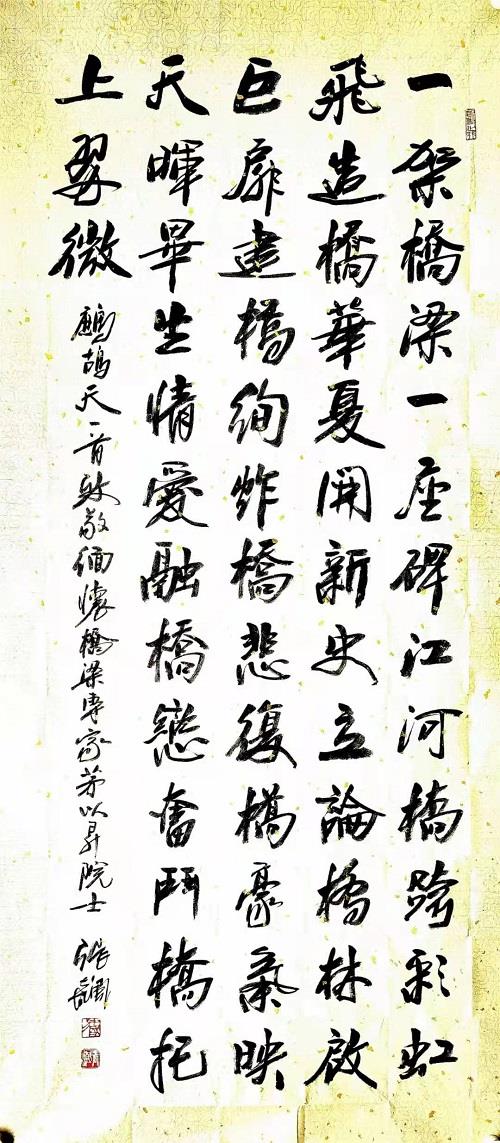 一架橋梁一座碑江河橋跨彩虹
飛造橋華夏開新史立論橋林啟
巨扉建橋絢炸橋悲復橋豪氣映
天暉畢生情愛融橋戀奮鬥橋托
上翠微
鷓鴣天一首致敬緬懷橋梁專家茅以昇院士 張